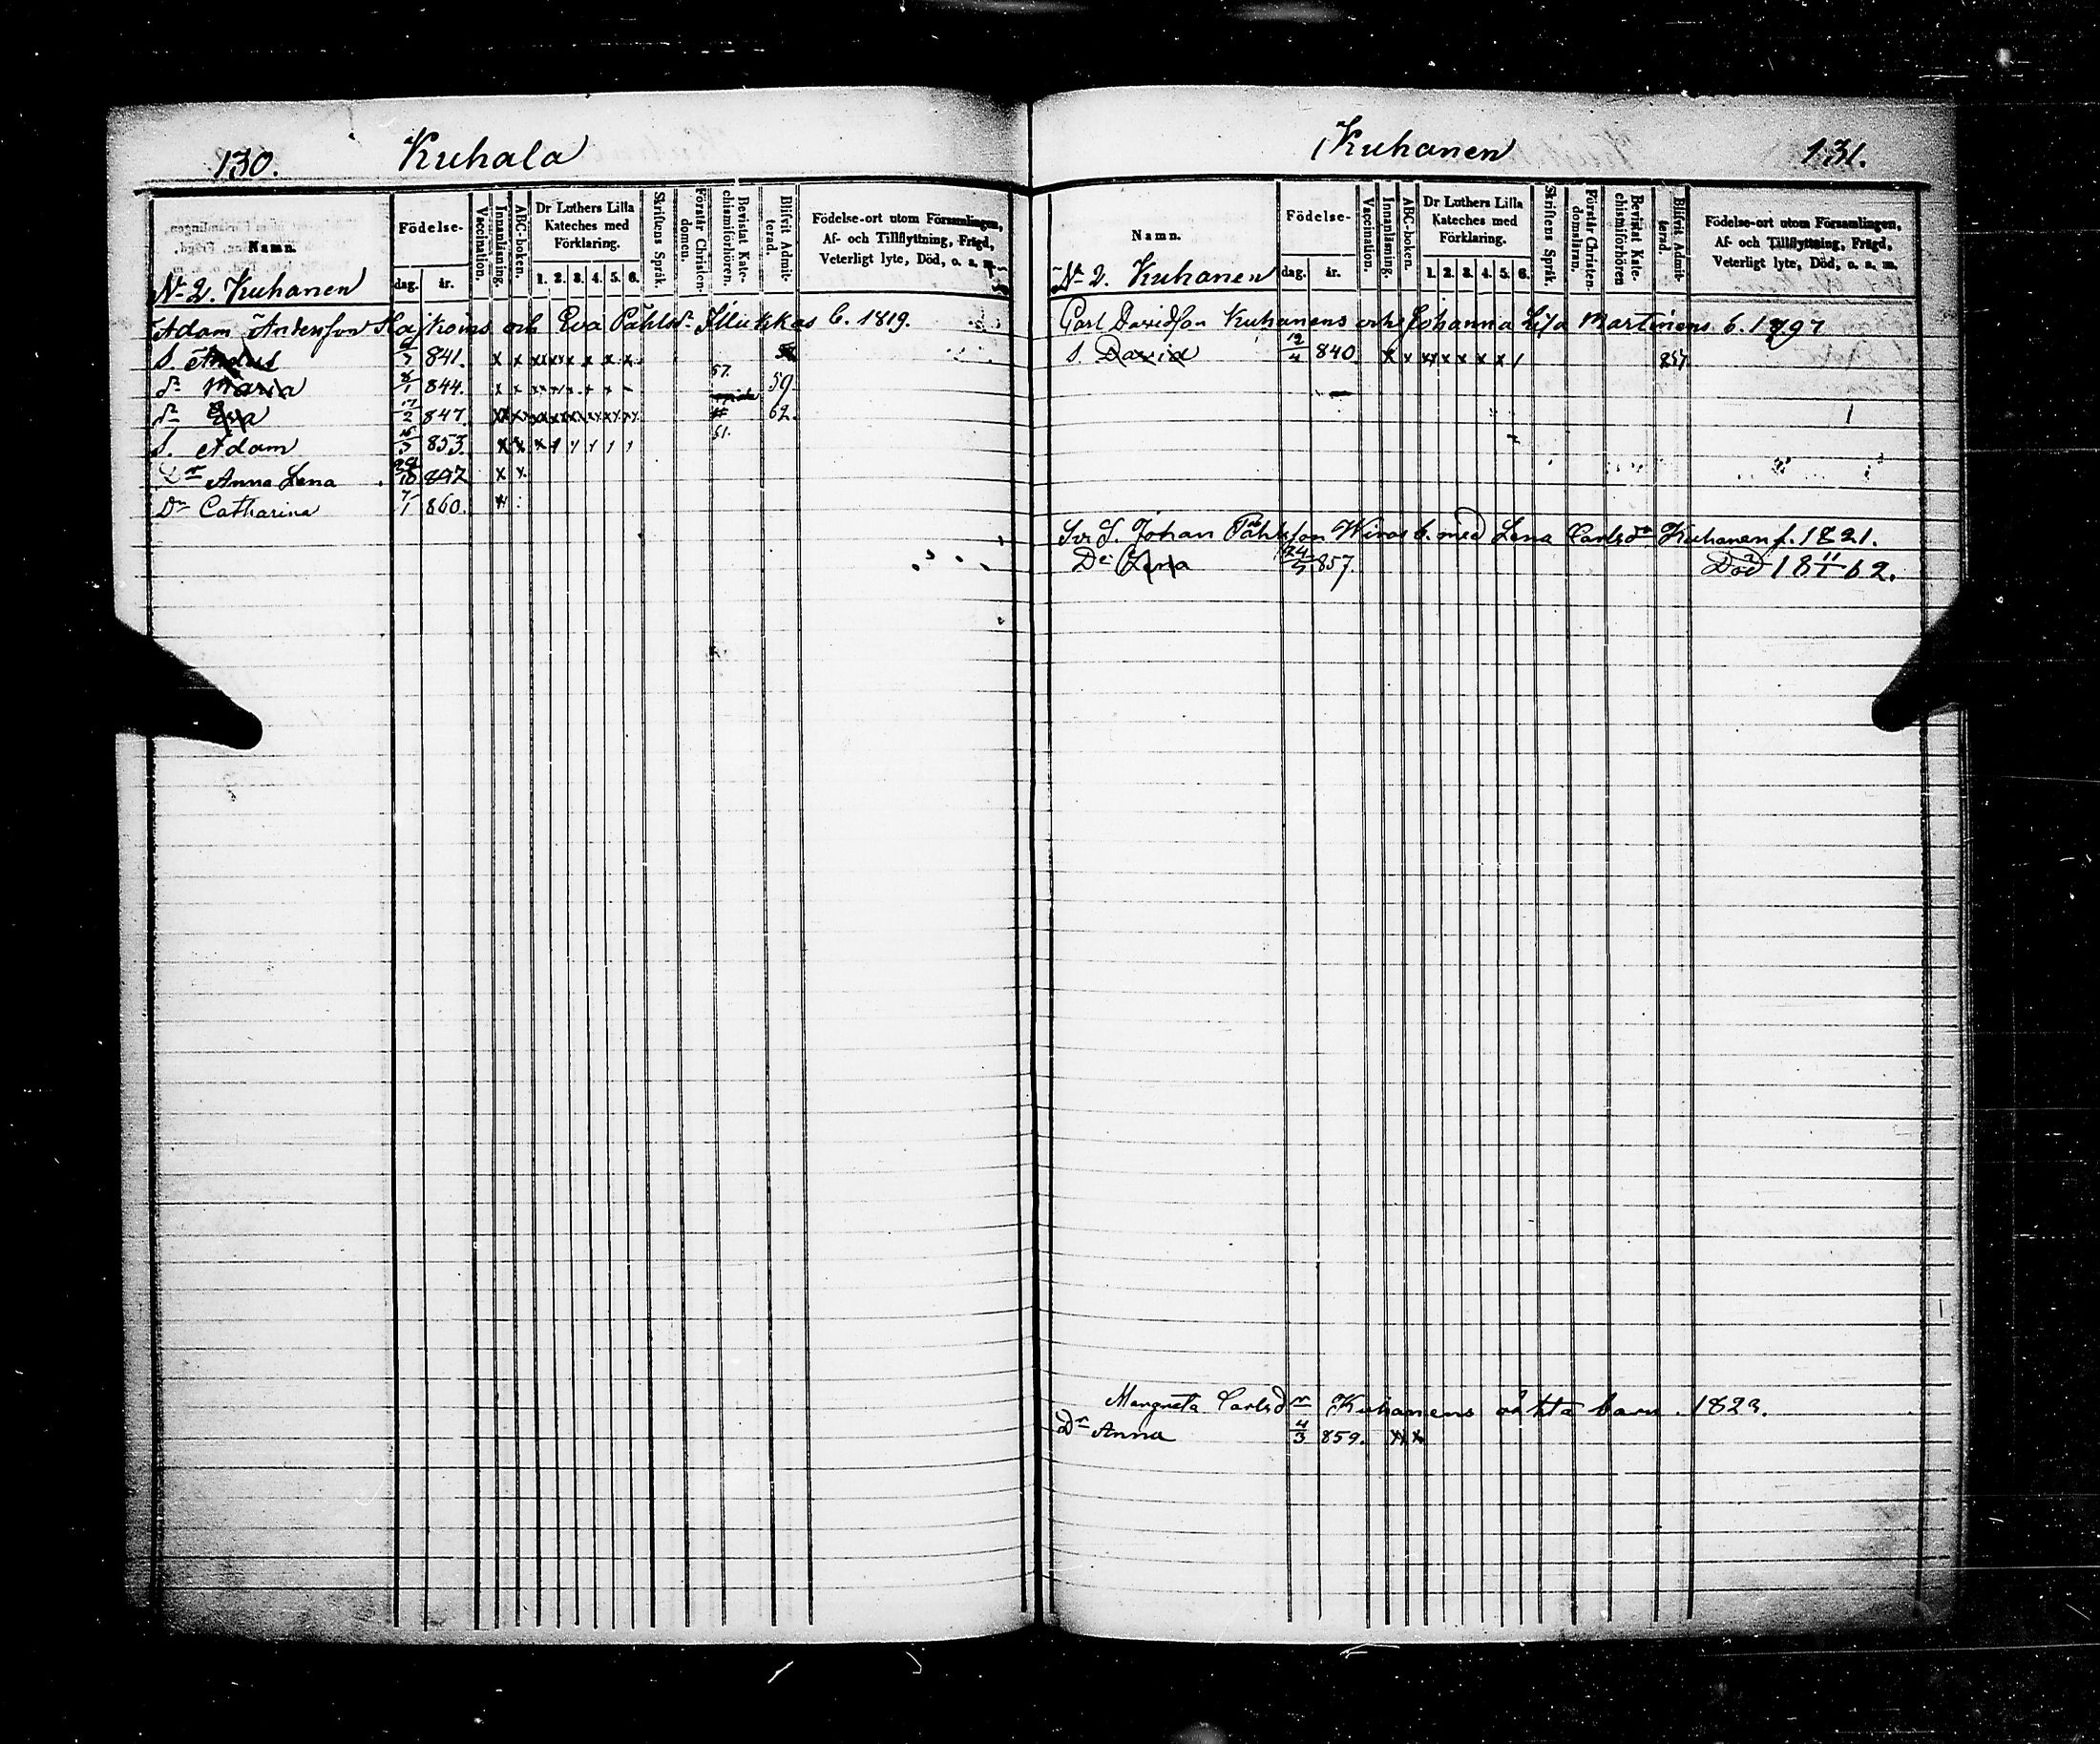 130. Kuhala
Namn. Födelse- Vaccination. Innanläsning. ABC-boken. Dr Luthers Lilla Kateches med Förklaring. Skriftens Språk. Förstår Christendomen. Bevistat Katechismiförhören. Blifvit Admitterad. Födelse-ort utom Församlingen, Af- och Tillflyttning, Frägd, Veterligt lyte, Död, o. s. m.
N 2. Kuhanen dag. år. 1. 2. 3. 4. 5. 6.
Adam Andersson och Eva Påhlsdr b. 1819.
S. 841. x x xx x x x x x
dr Maria 8/1 844. x x 57. 59
dr Eva 847. 62.
S. Adam 853. x x x 51.
Dr Anna Lena x x
Dr Catharina 7/1 860. x
Kuhanen 131.
Namn. Födelse- Vaccination. Innanläsning. ABC-boken. Dr Luthers Lilla Kateches med Förklaring. Skriftens Språk. Förstår Christendomsläran. Bevistat Katechismiförhören Blifvit Admitterad. Födelse-ort utom Församlingen, Af- och Tillflyttning, Frägd, Veterligt lyte, Död, o. s. m.
N 2. Kuhanen dag. år. 1. 2. 3. 4. 5. 6.
Carl Davidson Kuhanens och Johanna Lisa Martinens b. 1797
S. David 12/4 840 x x xx x x x x / 857
Johan Påhlsson b. med Lena Carlsdr Kuhanen f. 1821.
Dr Lena 24/5 857. Död 18 11/1 62.
Margreta Carlsdr Kuhanens oäkta barn. 1823.
Dr Anna 4/3 859. x x